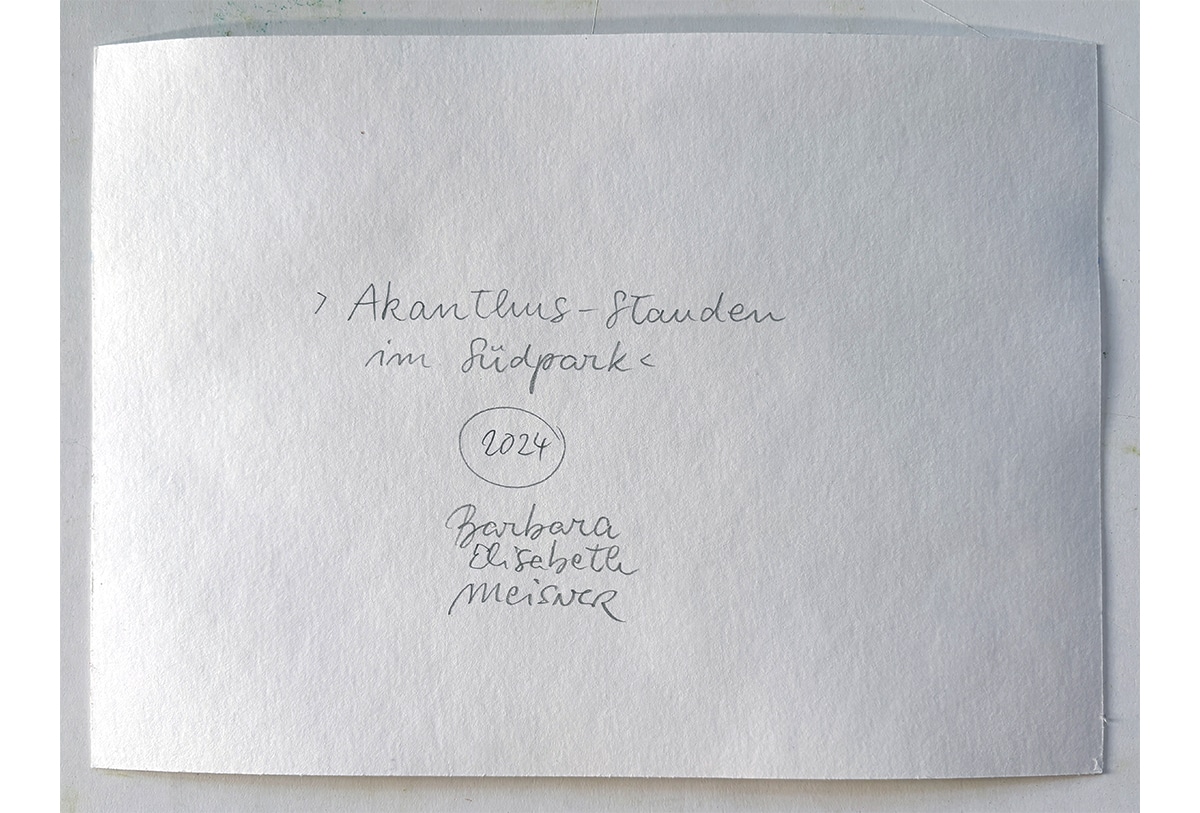 > Akanthus-Stauden
im Südpark <
2024
Barbara
Elisabeth
Meisner